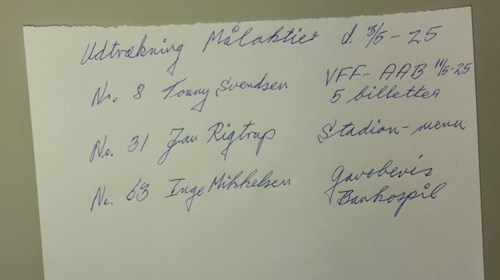 Udtrækning Målaktier d. 3/5-25
Nr. 8 Tonny Svendsen VFF-AAB 11/5-25
5 billetter
No. 31 Jan Rigtrup Stadion-menu
No. 63 Inge Mikkelsen Gavebevis
Bankospil